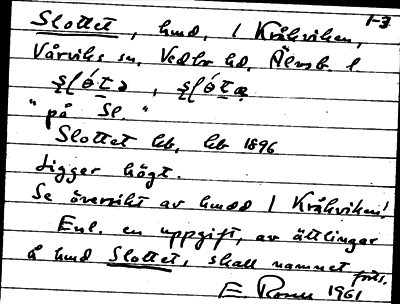 1-3
Slottet, hmd, / Kråkviken,
Vårviks sn, Vedbo hd, Älvsb. l
"på Sl."
Slottet hb, hb 1896
Ligger högt.
Se översikt av hmdd / Kråkviken!
Enl. en uppgift, av ättlingar
å hmd Slottet, skall namnet
forts.
E. 1961